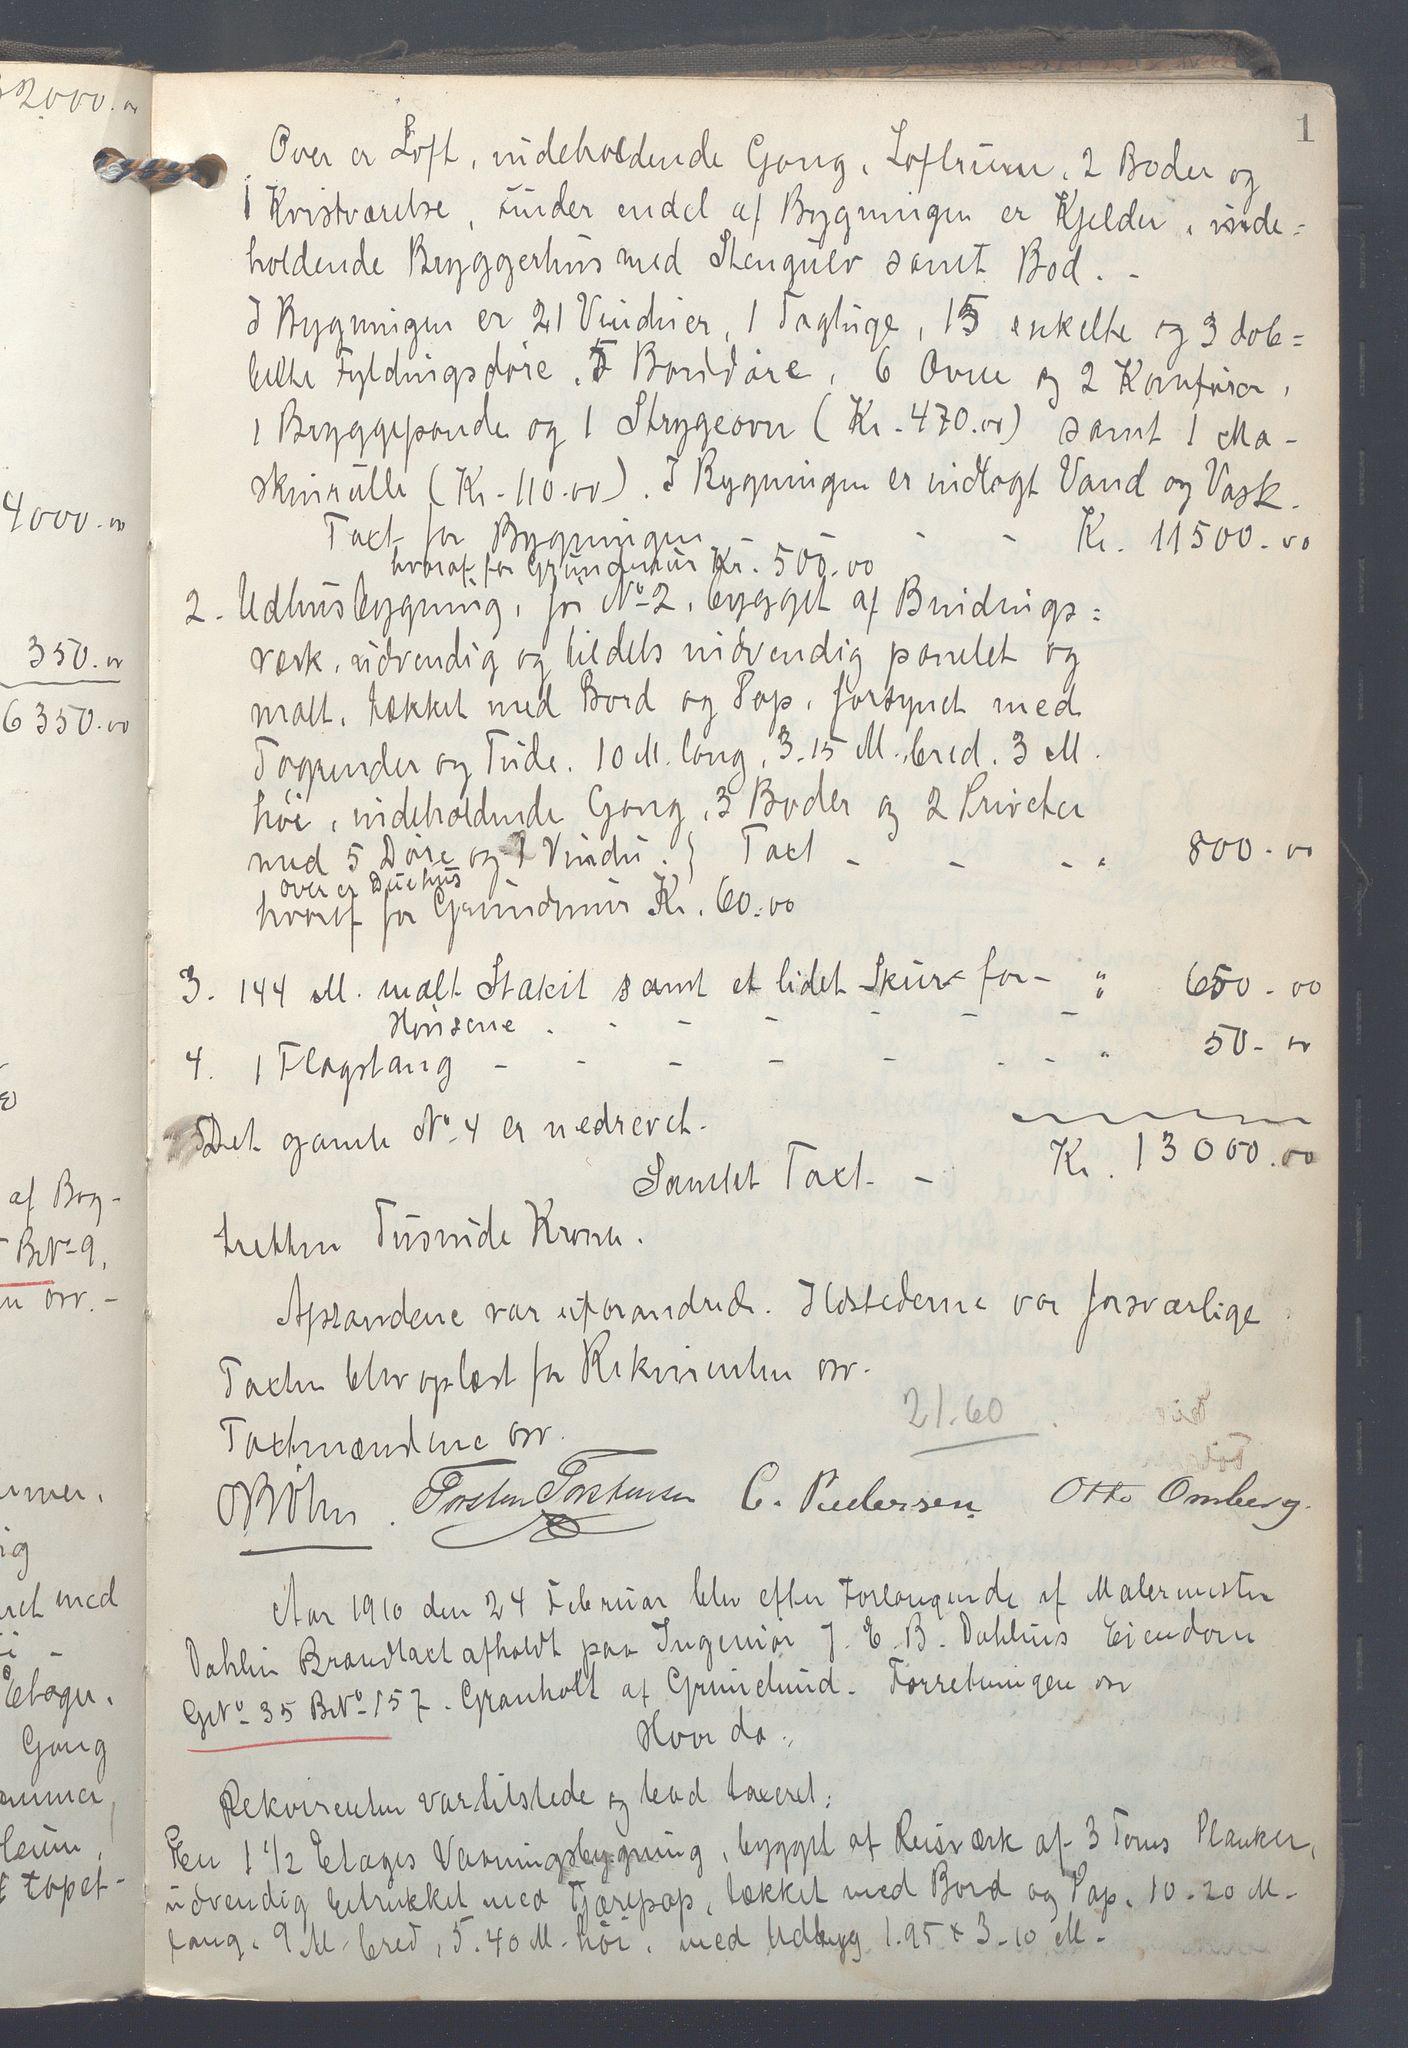 2000.00
4000.00
350.00
6350.00
af Byg-
BrNo 9.
osv.-
med
Etager.
Gang
tapet-
1
Over er Loft, indeholdende Gang, Loftrum, 2 Boder og
1 Kvistværelse, under endel af Bygningen er Kjelder, inde=
holdende Bryggerhus med Stengulv samt Bod. -
I Bygningen er 21 Vinduer, 1 Tagluge, 15 enkelte og 3 dob=
belte Fyldingsdøre, 5 Borddøre, 6 Ovne og 2 Komfurer,
1 Bryggepande og 1 Strygeovn (Kr. 470.00) samt 1 Ma-
skinrulle (Kr. 110.00). I Bygningen er indlagt Vand og Vask.
Taxt for Bygningen - - - Kr. 11500.00
hvoraf for Grundmur Kr. 500.00
2. Udhusbygning, før No 2, bygget af Bindings=
værk, udvendig og tildels indvendig panelet og
malt, tækket med Bord og Pap, forsynet med
Tagrender og Trude. 10 M. lang, 3.15 M. bred, 3 M.
høi, indeholdende Gang, 3 Boder og 2 Priveter
med 5 Døre og 1 Vindu. } Taxt - - - " 800.00
over er Duehus
hvoraf for Grundmur Kr. 60.00
3. 144 M. malt Stakit samt et lidet Skur for - " 650.00
Hønsene . - - - - -
4. 1 Flagstang - - - - - - - " 50.00
Det gamle No 4 er nedrevet.
Samlet Taxt. - Kr. 13000.00
tretten Tusinde Kroner.
Afstandene var uforandred. Ildstederne var forsvarlige
Taxten blev oplæst for Rekvirenten osv.
21.60
Taxtmændene osv.
O Bøhn. Torsten Torstensen C. Pedersen Otto Omberg.
Aar 1910 den 24 Februar blev efter Forlangende af Malermester
Dahlin Brandtaxt afholdt paa Ingeniør J. E. B. Dahlins Eiendom
GrNo 35 BrNo 157. Granholt af Grindlund. Forretningen osv
Hvorda:
Rekvirenten var tilstede og blev taxeret:
En 1 1/2 Etages Vaaningsbygning, bygget af Reisværk af 3 Toms Planker,
udvendig betrukket med Tjærepap, tækket med Bord og Pap, 10.20 M.
lang, 9 M. bred, 5.40 M. høi, med Udbyg 1.95 x 3.10 M.